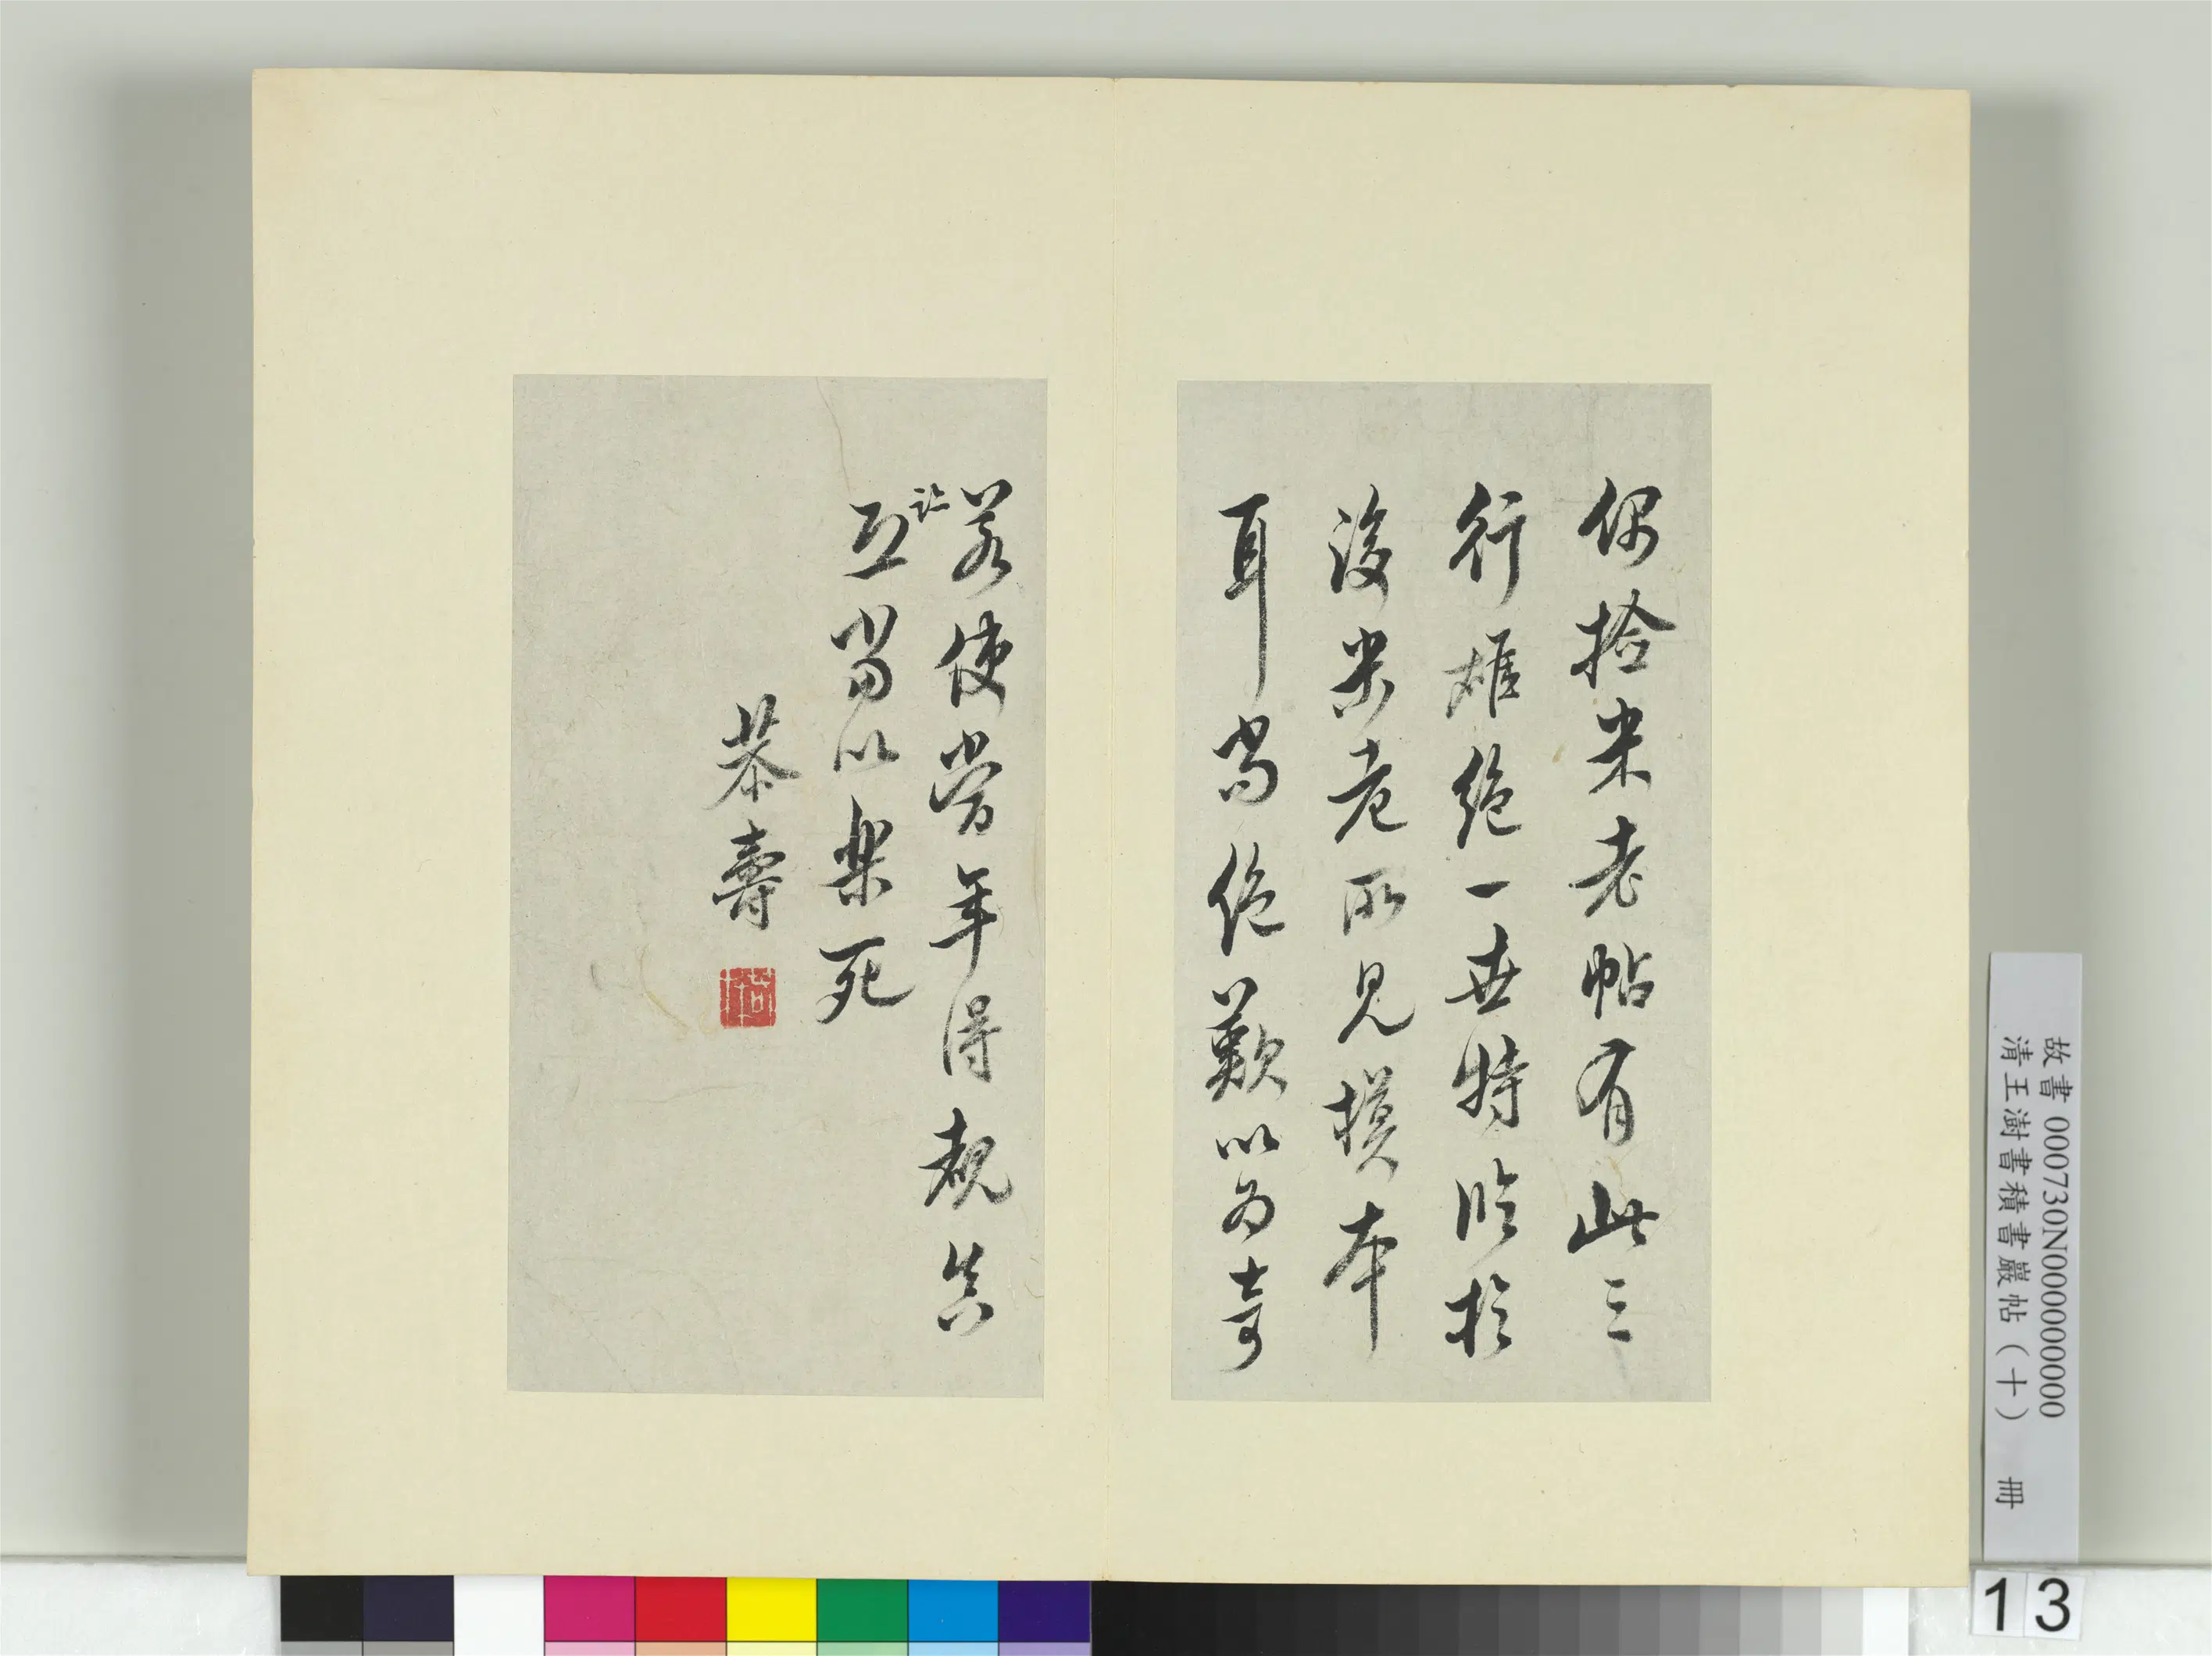 偶拾米老帖有此三
行雄絕一世特臨於
後米老所見摸本
耳尚絕歎以為奇
若使當年得覩真
正當以樂死
恭壽
故書 000730N000000000
清王澍書積書巖帖(十) 冊
13